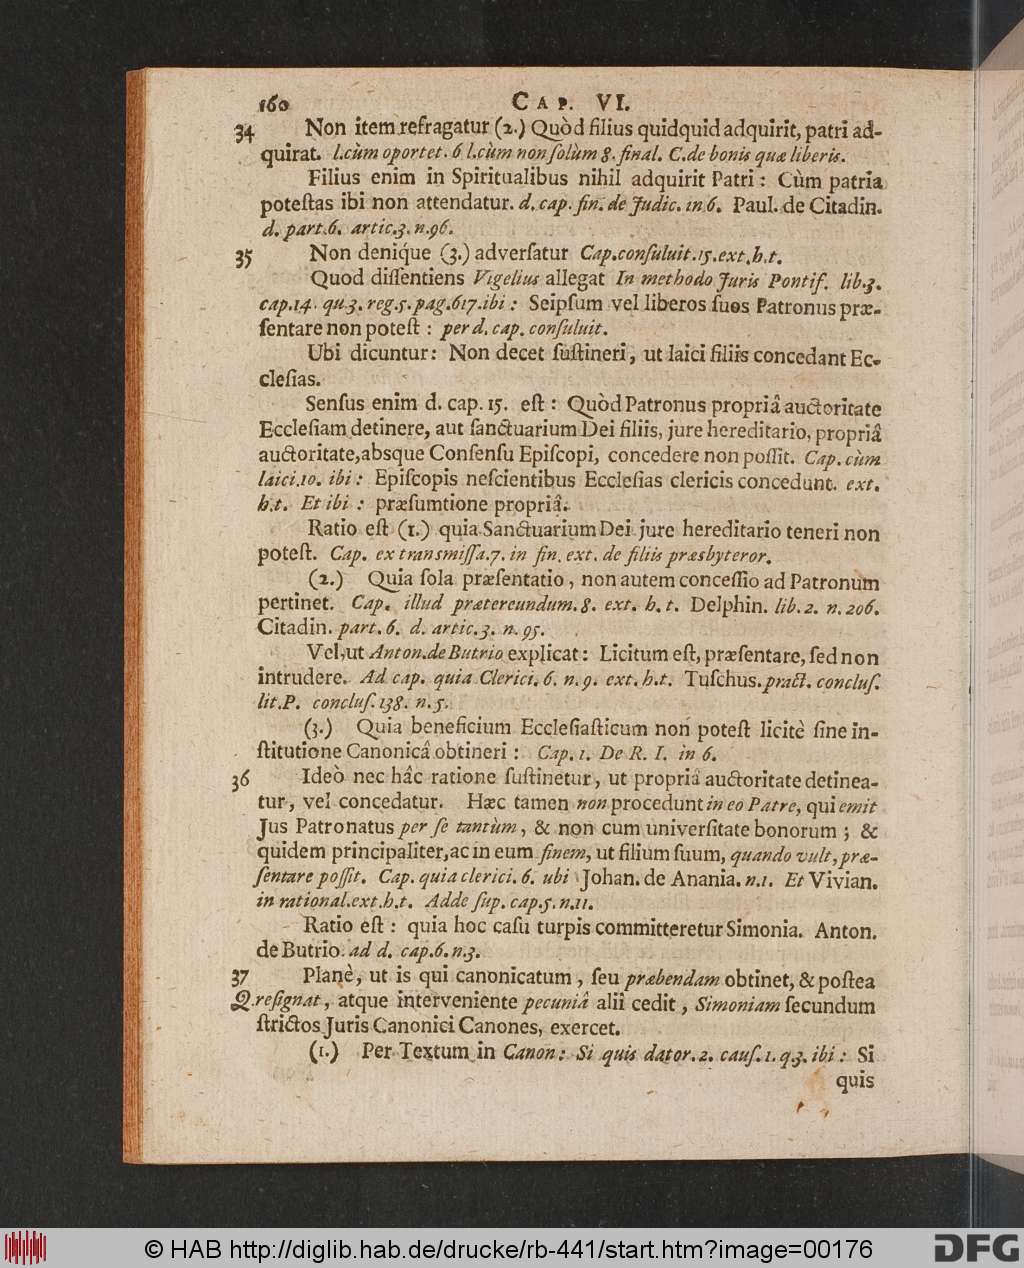 160 CAP. VI.
34 Non item refragatur (2.) Quòd filius quidquid adquirit, patri ad-
quirat. l.cùm oportet. 6 l.cùm non ſolùm 8. final. C.de bonis quæ liberis.
Filius enim in Spiritualibus nihil adquirit Patri: Cùm patria
poteſtas ibi non attendatur. d. cap. fin. de Judic. in 6. Paul. de Citadin.
d. part.6. artic.3. n.96.
35 Non denique (3.) adverſatur Cap.conſuluit.15.ext.h.t.
Quod diſſentiens Vigelius allegat In methodo Juris Pontif. lib.3.
cap.14. qu.3. reg.5. pag.617.ibi: Seipſum vel liberos ſuos Patronus præ-
ſentare non poteſt: per d. cap. conſuluit.
Ubi dicuntur: Non decet ſuſtineri, ut laici filiis concedant Ec-
cleſias.
Senſus enim d. cap. 15. eſt: Quòd Patronus propriâ auctoritate
Eccleſiam detinere, aut ſanctuarium Dei filiis, jure hereditario, propriâ
auctoritate, absque Conſenſu Epiſcopi, concedere non poſſit. Cap. cùm
laici.10. ibi: Epiſcopis neſcientibus Eccleſias clericis concedunt. ext.
h.t. Et ibi: præſumtione propriâ.
Ratio eſt (1.) quia Sanctuarium Dei jure hereditario teneri non
poteſt. Cap. ex transmiſſa.7. in fin. ext. de filiis præsbyteror.
(2.) Quia ſola præſentatio, non autem conceſſio ad Patronum
pertinet. Cap. illud prætereundum. 8. ext. h. t. Delphin. lib. 2. n. 206.
Citadin. part. 6. d. artic.3. n. 95.
Vel, ut Anton.de Butrio explicat: Licitum eſt, præſentare, ſed non
intrudere. Ad cap. quia Clerici. 6. n. 9. ext. h.t. Tuſchus. pract. concluſ.
lit.P. concluſ. 138. n. 5.
(3.) Quia beneficium Eccleſiaſticum non poteſt licitè ſine in-
ſtitutione Canonicâ obtineri: Cap. 1. De R. I. in 6.
36 Ideò nec hâc ratione ſuſtinetur, ut propriâ auctoritate detinea-
tur, vel concedatur. Hæc tamen non procedunt in eo Patre, qui emit
Jus Patronatus per ſe tantùm, & non cum univerſitate bonorum; &
quidem principaliter, ac in eum finem, ut filium ſuum, quando vult, præ-
ſentare poſſit. Cap. quia clerici. 6. ubi Johan. de Anania. n.1. Et Vivian.
in rational.ext.h.t. Adde ſup. cap.5. n.11.
Ratio eſt: quia hoc caſu turpis committeretur Simonia. Anton.
de Butrio. ad d. cap.6. n.3.
37 Planè, ut is qui canonicatum, ſeu præbendam obtinet, & poſtea
Q. reſignat, atque interveniente pecuniâ alii cedit, Simoniam ſecundum
ſtrictos Juris Canonici Canones, exercet.
(1.) Per Textum in Canon: Si quis dator. 2. cauſ. 1. q.3. ibi: Si
quis
© HAB http://diglib.hab.de/drucke/rb-441/start.htm?image=00176
DFG